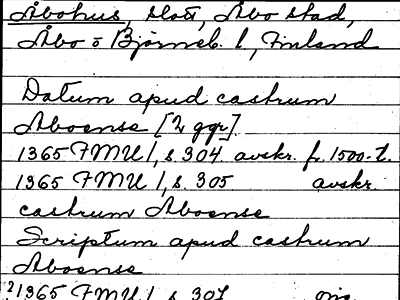 Åbohus, slott, Åbo stad,
Åbo o Björneb. l, Finland
Datum apud castrum
Aboense [2 ggr].
1365 FMU 1, s 304 avskr. fr. 1500-t.
1365 FMU 1, s. 305 avskr.
castrum Aboense
Scriptum apud castrum
Aboense
1365 FMU 1, s 307 orig.